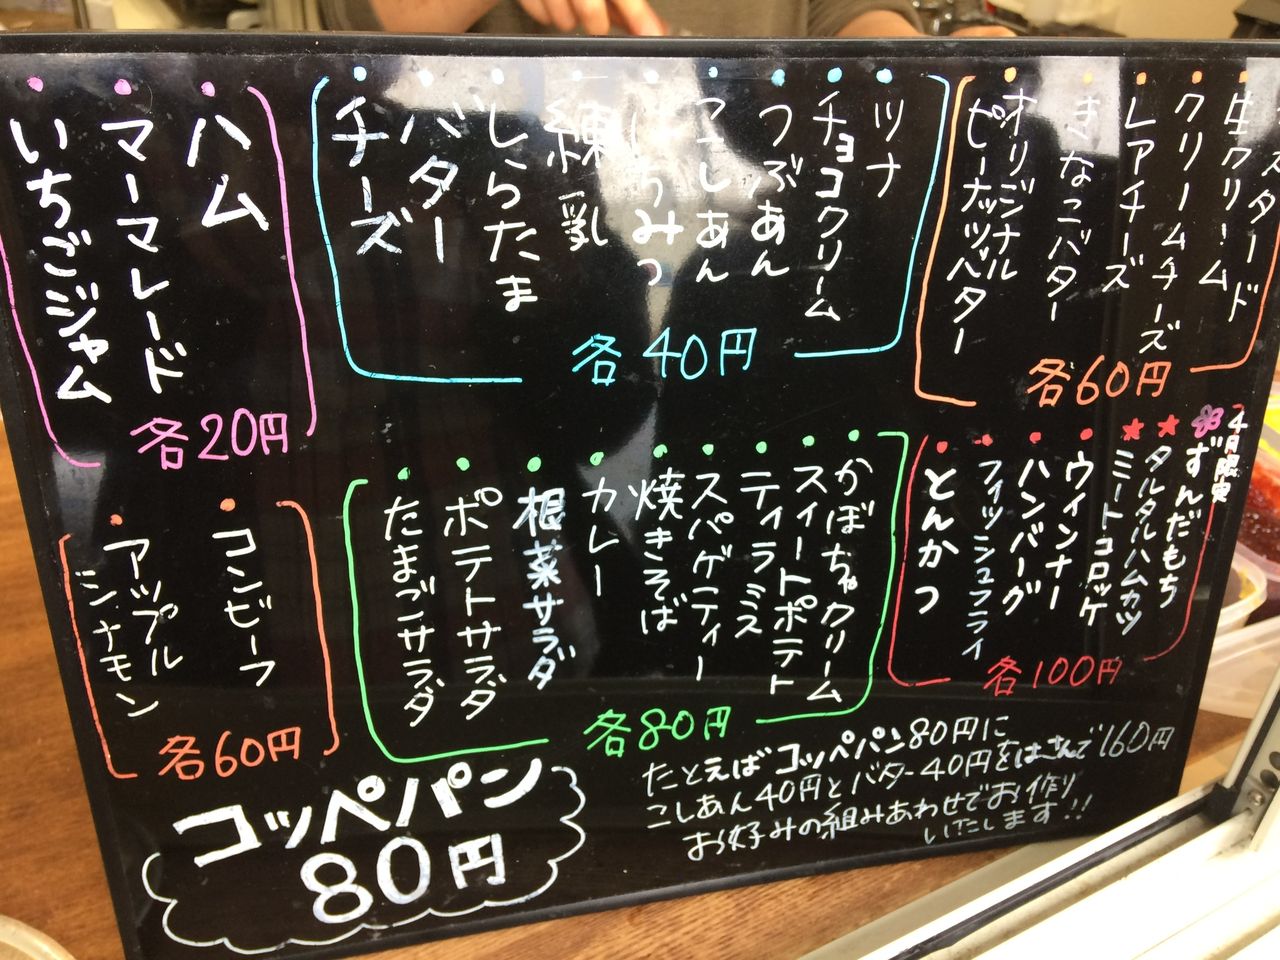 スタード
生クリーム
クリームチーズ
レアチーズ
きなこバター
オリジナル
ピーナッツバター
各60円
ツナ
チョコクリーム
つぶあん
こしあん
はちみつ
練乳
しらたま
バター
チーズ
各40円
ハム
マーマレード
いちごジャム
各20円
4月限定
ずんだもち
タルタルハムカツ
ミートコロッケ
ウインナー
ハンバーグ
フィッシュフライ
とんかつ
各100円
かぼちゃクリーム
スイートポテト
ティラミス
スパゲティー
焼きそば
カレー
根菜サラダ
ポテトサラダ
たまごサラダ
各80円
コンビーフ
アップル
シナモン
各60円
コッペパン
80円
たとえばコッペパン80円に
こしあん40円とバター40円をはさんで160円
お好みの組みあわせでお作り
いたします!!